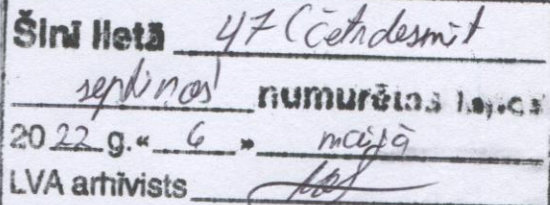 Šinī lietā 47 (četrdesmit
septiņas) numurētas lapas
2022 g. « 6 » maijā
LVA arhīvists